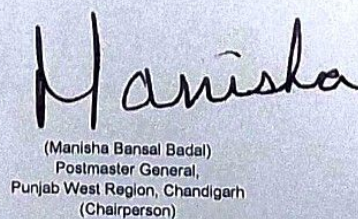 Manisha
(Manisha Bansal Badal)
Postmaster General,
Punjab West Region, Chandigarh
(Chairperson)